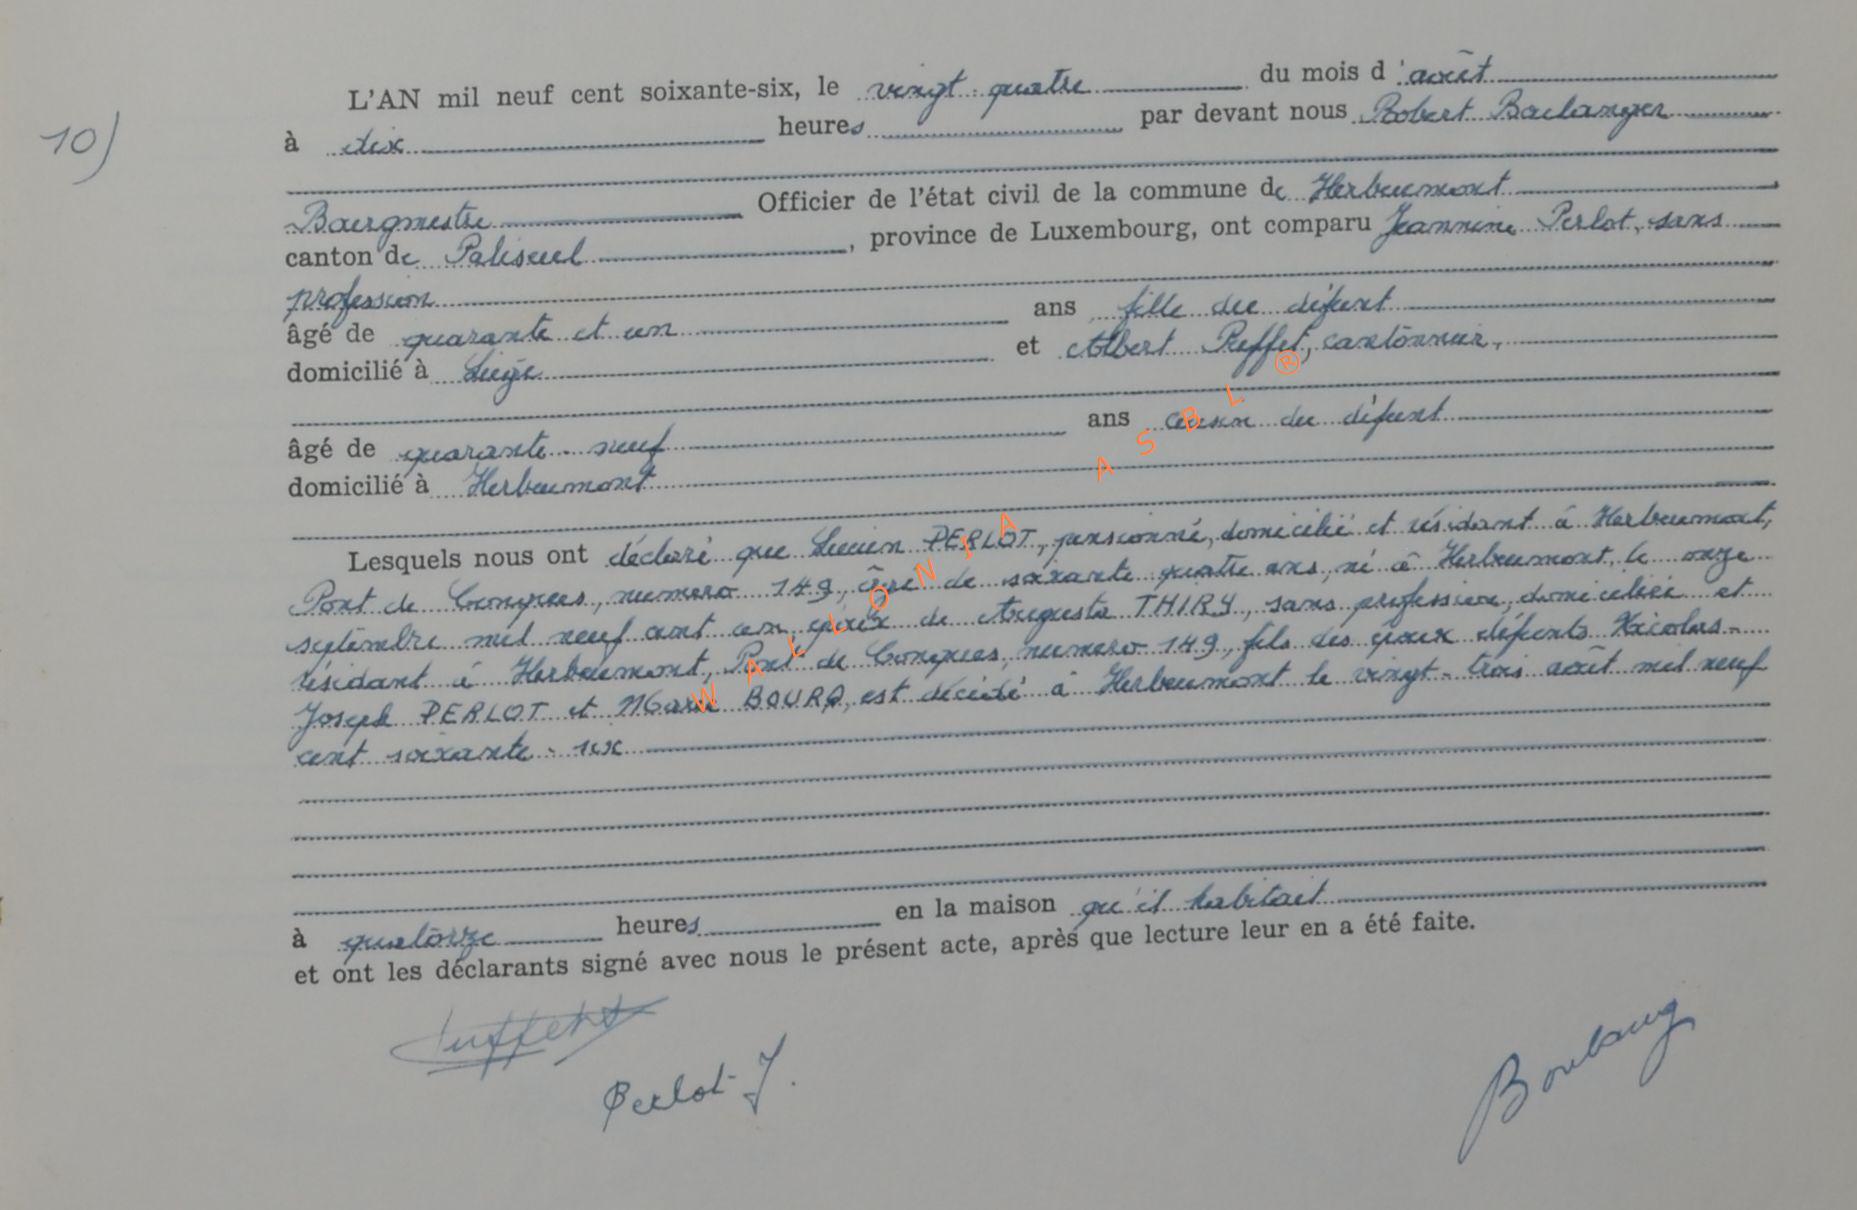 10)
L'AN mil neuf cent soixante-six, le vingt-quatre du mois d'août
à dix heures par devant nous Robert Boulanger
Bourgmestre Officier de l'état civil de la commune de Herbeumont
canton de Paliseul, province de Luxembourg, ont comparu Jeannine Perlot, sans
profession
âgé de quarante et un ans, fille du défunt
domicilié à Liège et Albert Puffet, cantonnier,
âgé de quarante-neuf ans cousin du défunt
domicilié à Herbeumont
Lesquels nous ont déclaré que Lucien PERLOT, pensionné, domicilié et résidant à Herbeumont,
Pont de Conques, numero 149, âgé de soixante quatre ans, né à Herbeumont, le onze
septembre mil neuf cent un, époux de Augusta THIRY, sans profession, domiciliée et
résidant à Herbeumont, Pont de Conques, numero 149, fils des époux défunts Nicolas-
Joseph PERLOT et Marie BOURQ, est décédé à Herbeumont le vingt-trois août mil neuf
cent soixante-six
à quatorze heures en la maison qu'il habitait
et ont les déclarants signé avec nous le présent acte, après que lecture leur en a été faite.
Perlot J.
Boulang
WALLONIA ASBL ®